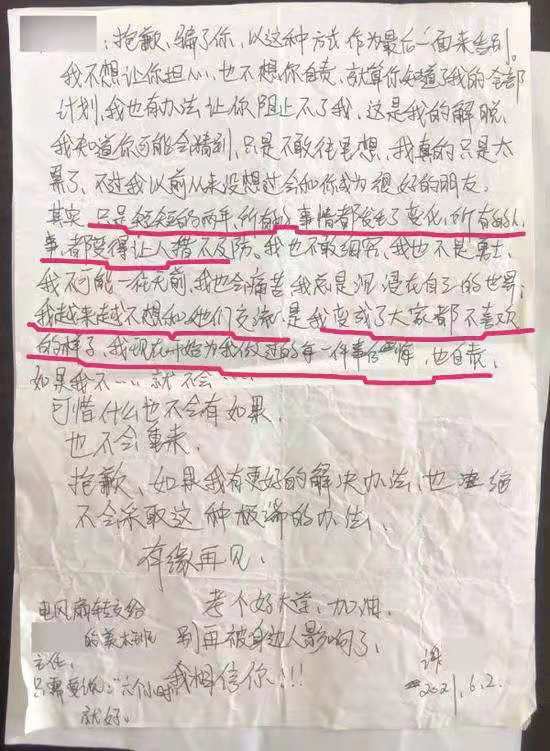 : 抱歉、骗了你，以这种方式作为最后一面来告别。
我不想让你担心，也不想你自责，就算你知道了我的全部
计划，我也有办法让你阻止不了我，这是我的解脱、
我知道你可能会猜到，只是不敢往里想，我真的只是太
累了，不过我以前从来没想过会和你成为很好的朋友，
其实，只是短短的两年，所有的事情都发生了变化，所有的人、
事，都变得让人措不及防。我也不敢，我也不是勇士，
我不可能一往无前，我也会痛苦，我总是沉浸在自己的世界，
我越来越不想和他们交流，是我变成了大家都不喜欢
的样子，我现在开始为我做过的每一件事后悔，也自责，
如果我不……就不会……
可惜什么也不会有如果，
也不会重来，
抱歉、如果我有更好的解决办法，也
不会采取这种极端的办法、
有缘再见、
考个好大学，加油，
别再被身边人影响了，
我相信你！！！
电风扇转交给
的美术班
主任，
只需要
就好。
2021.6.2.